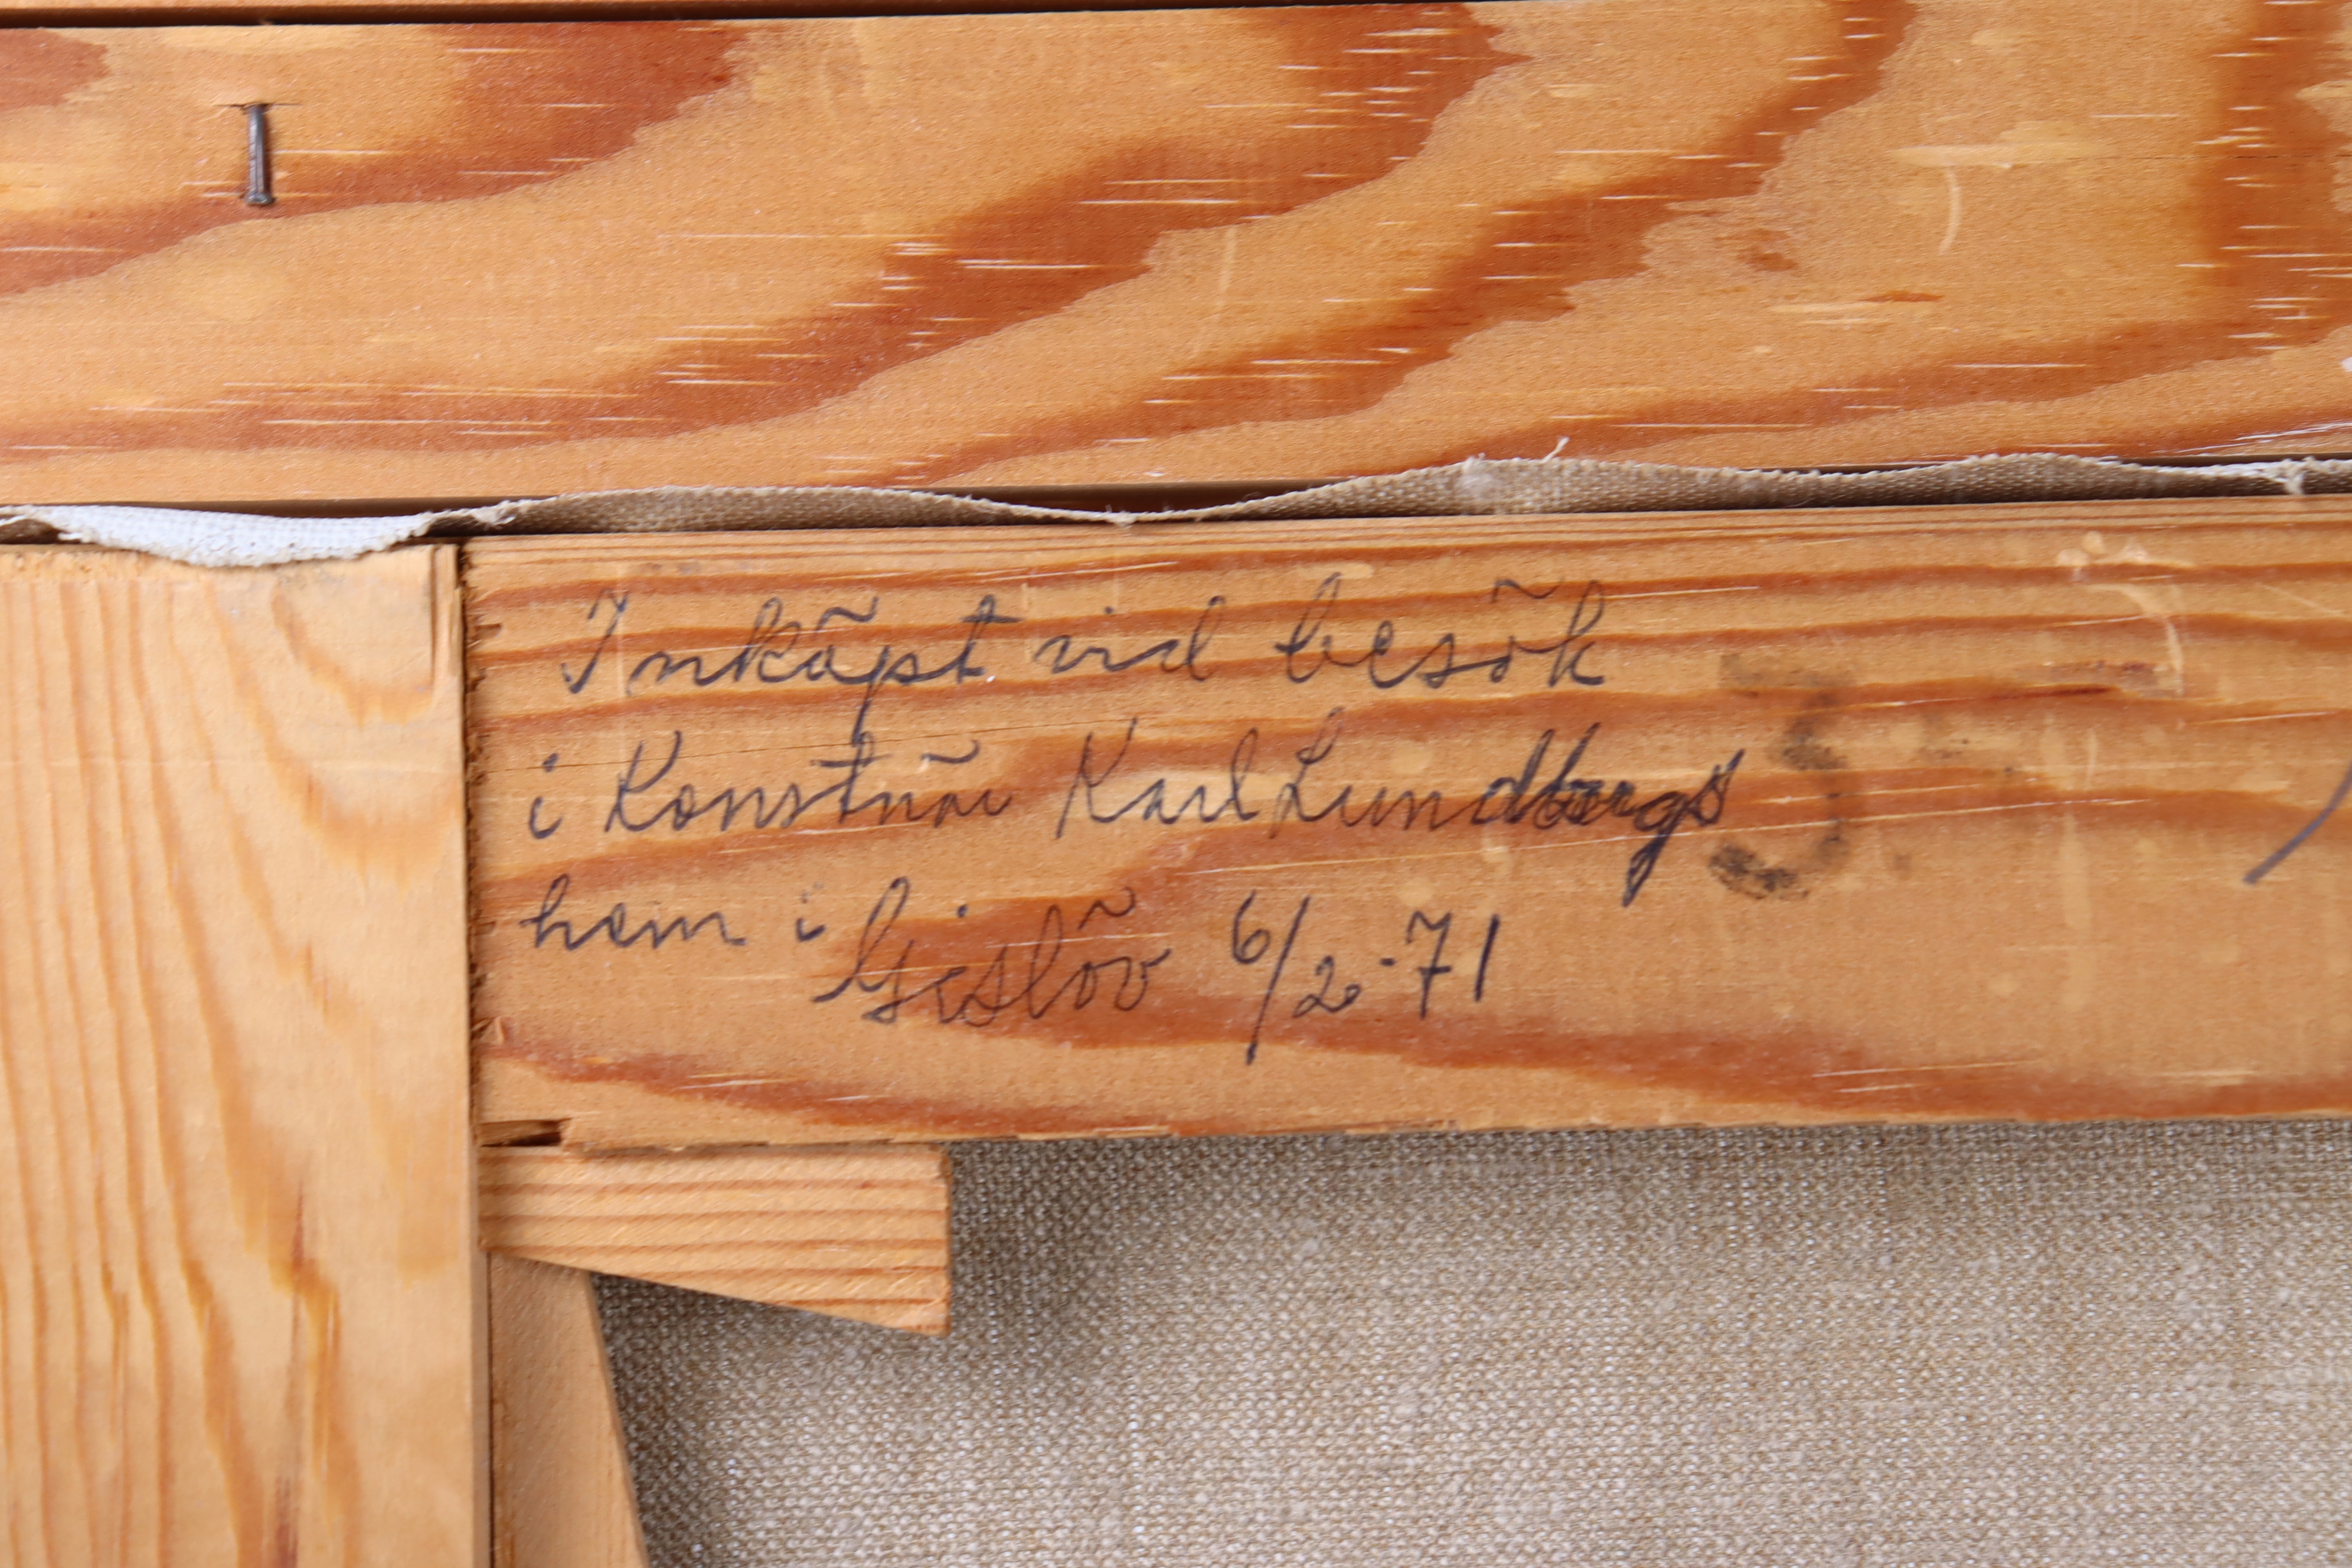 Inköpt vid besök
i Konstnär Karl Lundbergs
hem i Gislöv 6/2-71